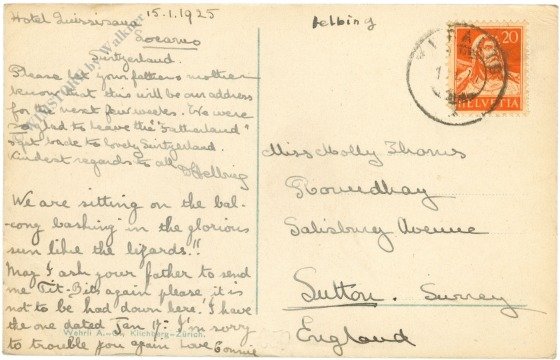 Hotel Quisisana 15.1.1925
Locarno
Switzerland.
Please let your father & mother
know that this will be our address
for the next few weeks. We were
glad to leave the "Fatherland"
& get back to lovely Switzerland.
Kindest regards to all
We are sitting on the bal-
cony basking in the glorious
sun like the lizards."
May I ask your father to send
me Tit-Bits again please, it is
not to be had down here. I have
the one dated Jan 17. I'm sorry
to trouble you again Love Connie
Wehrli A.-G., Kilchberg-Zürich.
Helbing
20
HELVETIA
Miss Molly Thomas
Roundhay
Salisbury Avenue
Sutton. Surrey
England